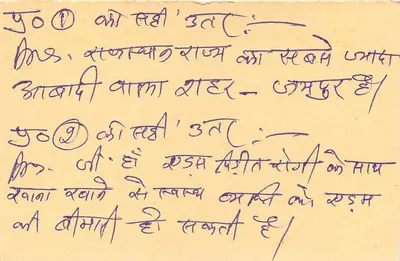 प्र० ① को सही उतर :-
Ans. राजस्थान राज्य का सबसे ज्यादा
आबादी वाला शहर - जयपुर है।
प्र० ② को सही उतर :-
Ans. जी हाँ एड्स पिड़ीत रोगी के साथ
खाना खाने से स्वस्थ व्यक्ति को एड्स
की बीमारी हो सकती है।